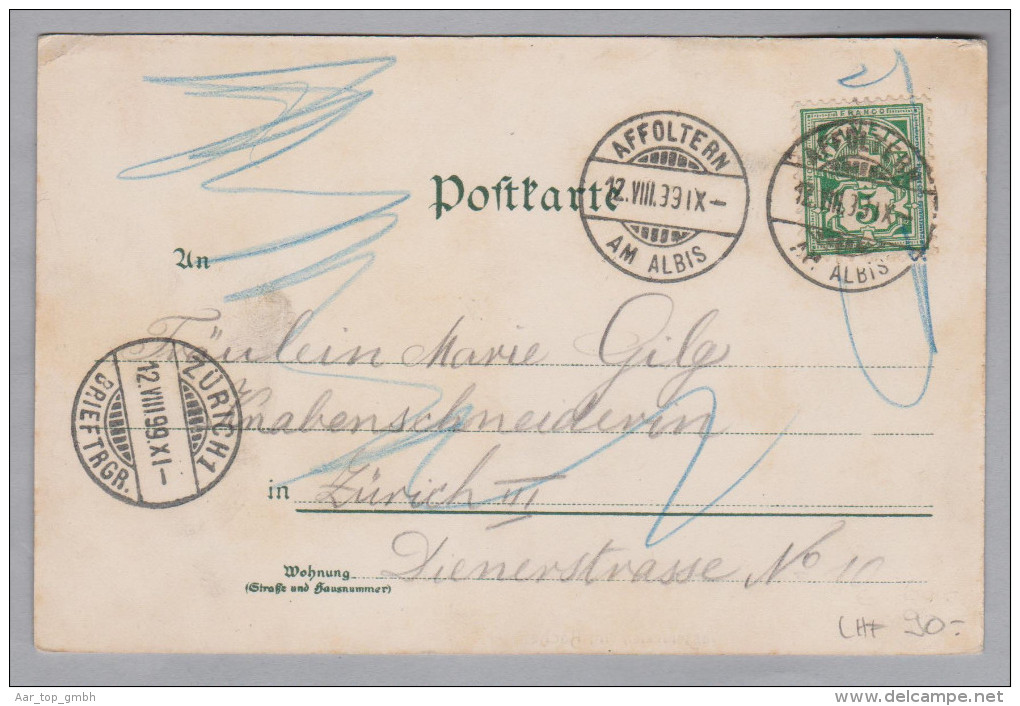 FRANCO
5
AFFOLTERN
12.VIII.99 IX–
AM ALBIS
12.VIII.99 IX
AM ALBIS
Postkarte
An
Fräulein Marie Gilg
Knabenschneiderin
ZÜRICH 1
12.VIII.99.XI–
BRIEFTRGR.
in Zürich III
Wohnung Dienerstrasse No 10
(Straße und Hausnummer)
CHF 90.-
Aar_top_gmbh
www.delcampe.net